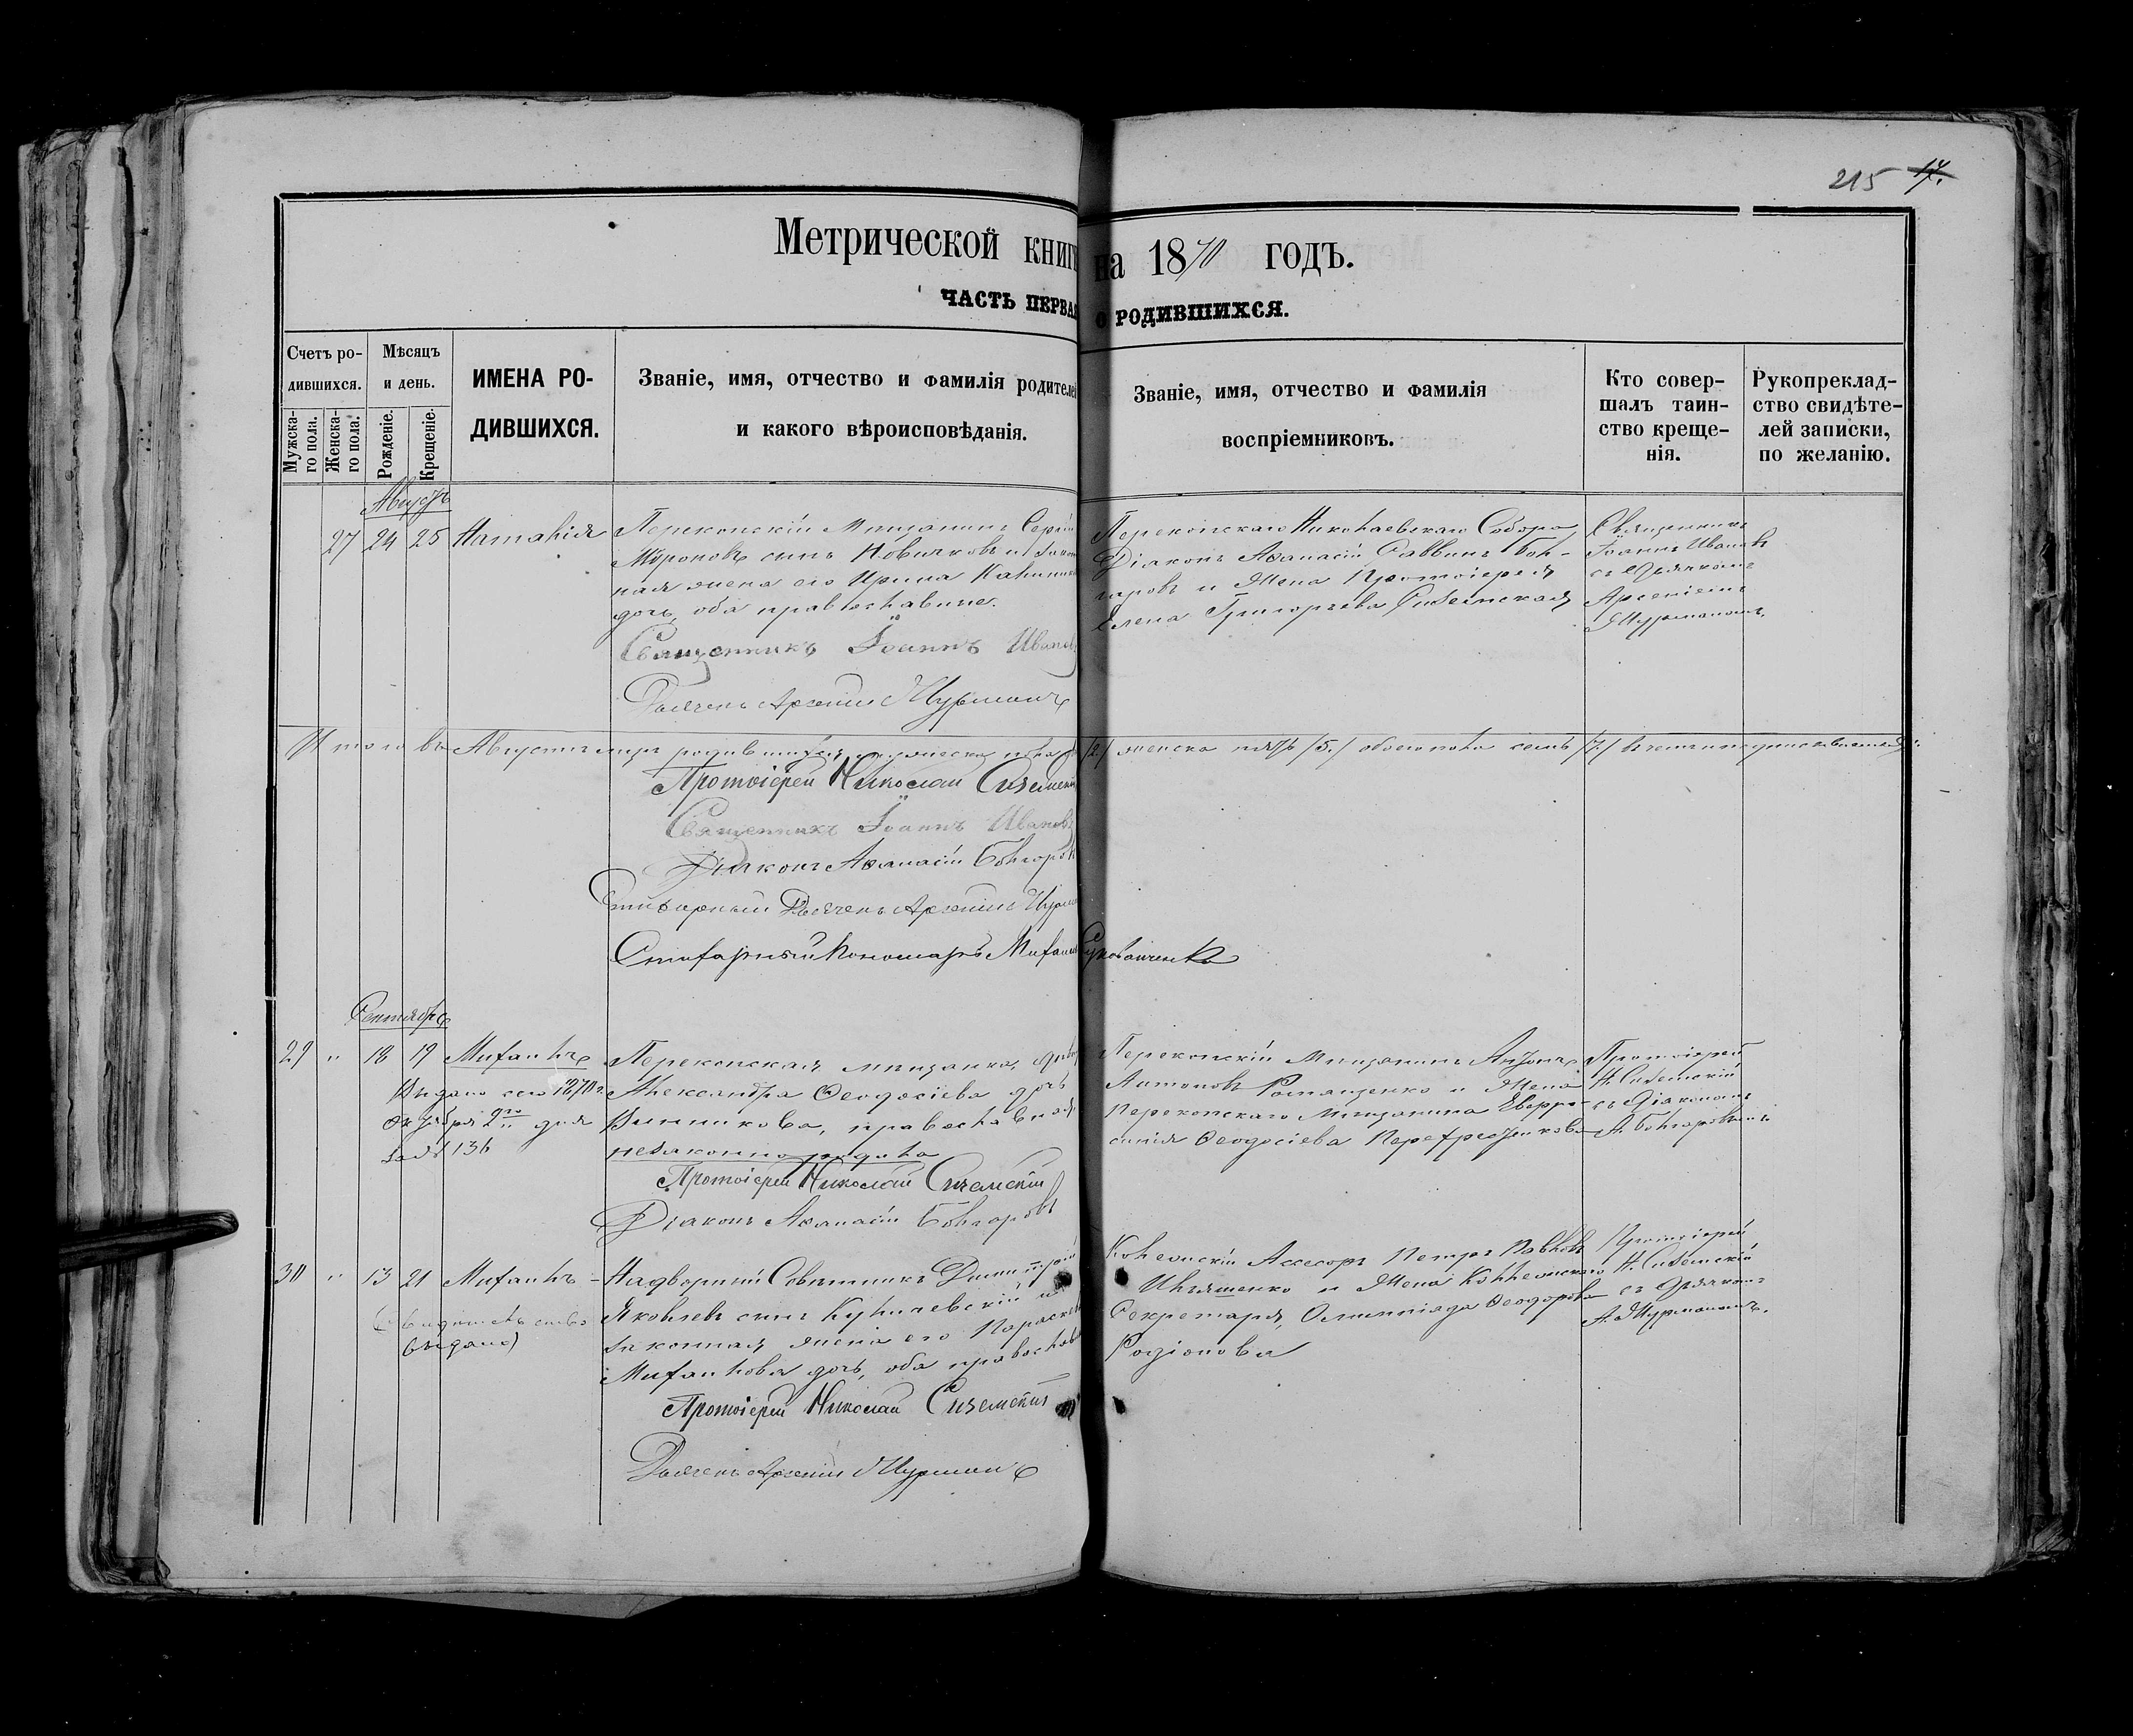 215 17.
Метрической книги на 1870 годъ.
ЧАСТЬ ПЕРВАЯ О РОДИВШИХСЯ.
Счетъ ро-
дившихся.
Мужска-
го пола.
Женска-
го пола.
Мѣсяцъ
и день.
Рожденіе.
Крещеніе.
ИМЕНА РО-
ДИВШИХСЯ.
Званіе, имя, отчество и фамилія родителей
и какого вѣроисповѣданія.
Званіе, имя, отчество и фамилія
воспріемниковъ.
Кто совер-
шалъ таин-
ство креще-
нія.
Рукоприклад-
ство свидѣте-
лей записки,
по желанію.
Августъ
27 24 25 Наталія
Перекопскій Мѣщанинъ Сергій
Мѵроновъ сынъ Новиковъ и закон
ная жена его Ирина
дочь, оба православные.
Священникъ Іоаннъ Ивановъ
Дьячекъ Арсеній Шурманъ
Перекопскаго Николаевскаго Собора
Діаконъ Аѳанасій Саввинъ Бол-
гаровъ и Жена Протоіерея
Елена Григорьева Сиземская
Священникъ
Іоаннъ Ивановъ
съ дьячкомъ
Арсеніемъ
Шурманомъ
Итого въ Августѣ мцѣ родившихся мужеска пола /2/ женска пять /5./ обоего пола семь /7./
Протоіерей Николай Сиземскій
Священникъ Іоаннъ Ивановъ
Діаконъ Аѳанасій Болгаровъ
Стихарный Дьячекъ Арсеній Шурманъ
Стихарный Пономарь Михаилъ
Сентябрь
29 " 18 19 Михаилъ
Выдано сего 1870 г.
Октября 2го дня
за № 136
Перекопская мѣщанка, дѣвица
Александра Ѳеодосіева дочь
Винникова, православная
незаконно родила
Протоіерей Николай Сиземскій
Діаконъ Аѳанасій Болгаровъ
Перекопскій Мѣщанинъ Антонъ
Антоновъ Романенко и Жена
Перекопскаго Мѣщанина Евфро-
синія Ѳеодосіева
Протоіерей
Н. Сиземскій
съ Діакономъ
А. Болгаровымъ
30 " 13 21 Михаилъ
выдано)
Надворный Совѣтникъ Димитрій
Яковлевъ сынъ и
законная жена его Параскева
Михаилова дочь, оба православные
Протоіерей Николай Сиземскій
Дьячекъ Арсеній Шурманъ
Коллежскій Ассесоръ Петръ Павловъ
Ильяшенко и Жена Коллежскаго
Секретаря, Олимпіада Ѳеодорова
Родіонова
Протоіерей
Н. Сиземскій
съ дьячкомъ
А. Шурманомъ.